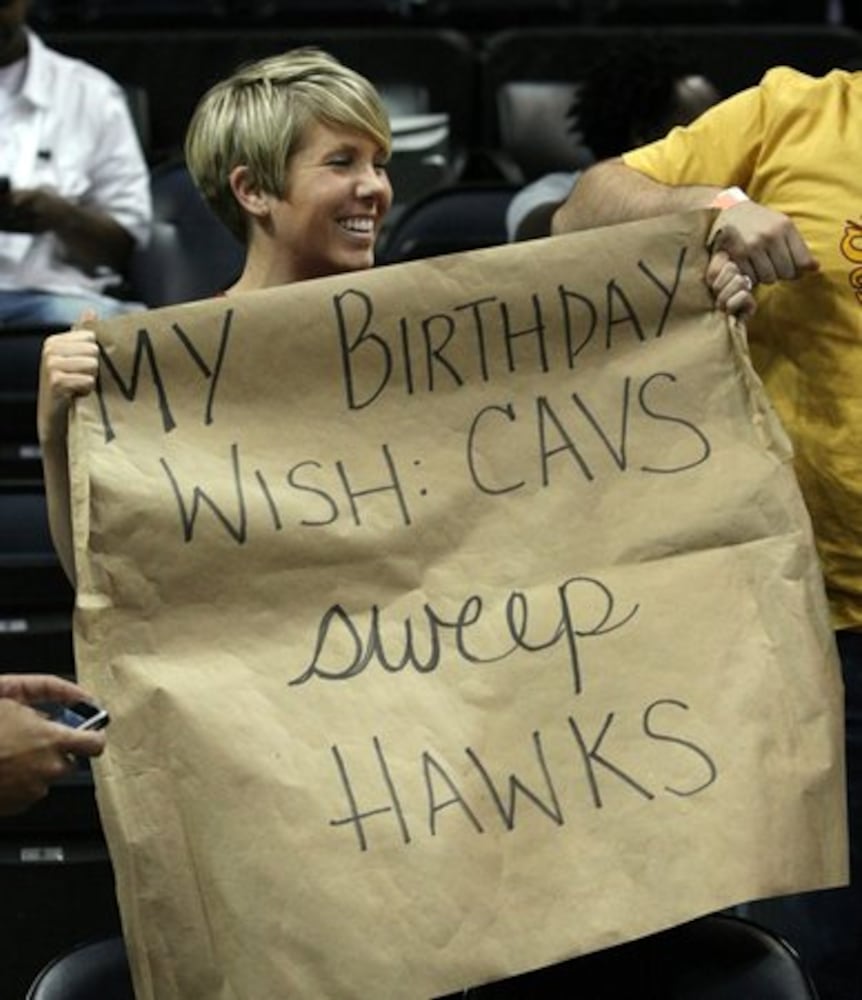 MY BIRTHDAY
WISH: CAVS
sweep
HAWKS